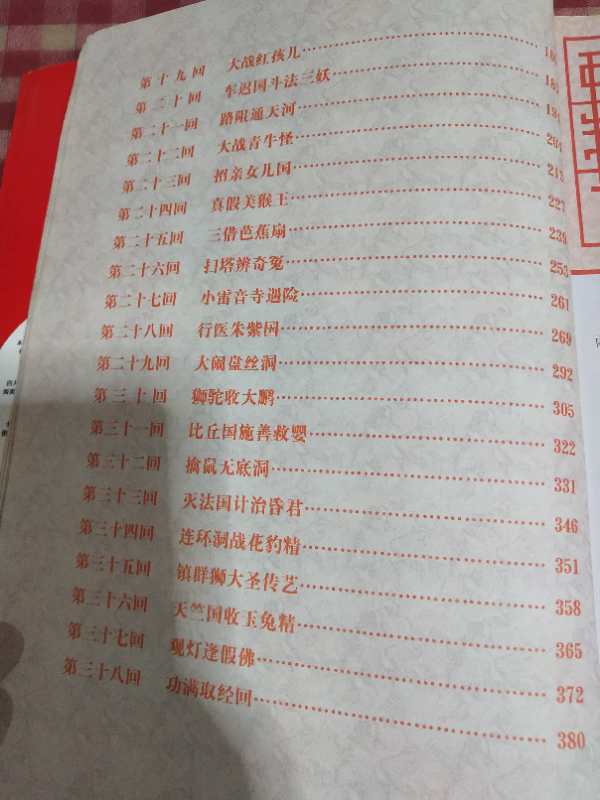 第十九回 大战红孩儿
第二十回 车迟国斗法三妖
第二十一回 路阻通天河
第二十二回 大战青牛怪
第二十三回 招亲女儿国
第二十四回 真假美猴王 227
第二十五回 三借芭蕉扇 239
第二十六回 扫塔辨奇冤 253
第二十七回 小雷音寺遇险 261
第二十八回 行医朱紫国 269
第二十九回 大闹盘丝洞 292
第三十回 狮驼收大鹏 305
第三十一回 比丘国施善救婴 322
第三十二回 擒鼠无底洞 331
第三十三回 灭法国计治昏君 346
第三十四回 连环洞战花豹精 351
第三十五回 镇群狮大圣传艺 358
第三十六回 天竺国收玉兔精 365
第三十七回 观灯逢假佛 372
第三十八回 功满取经回 380